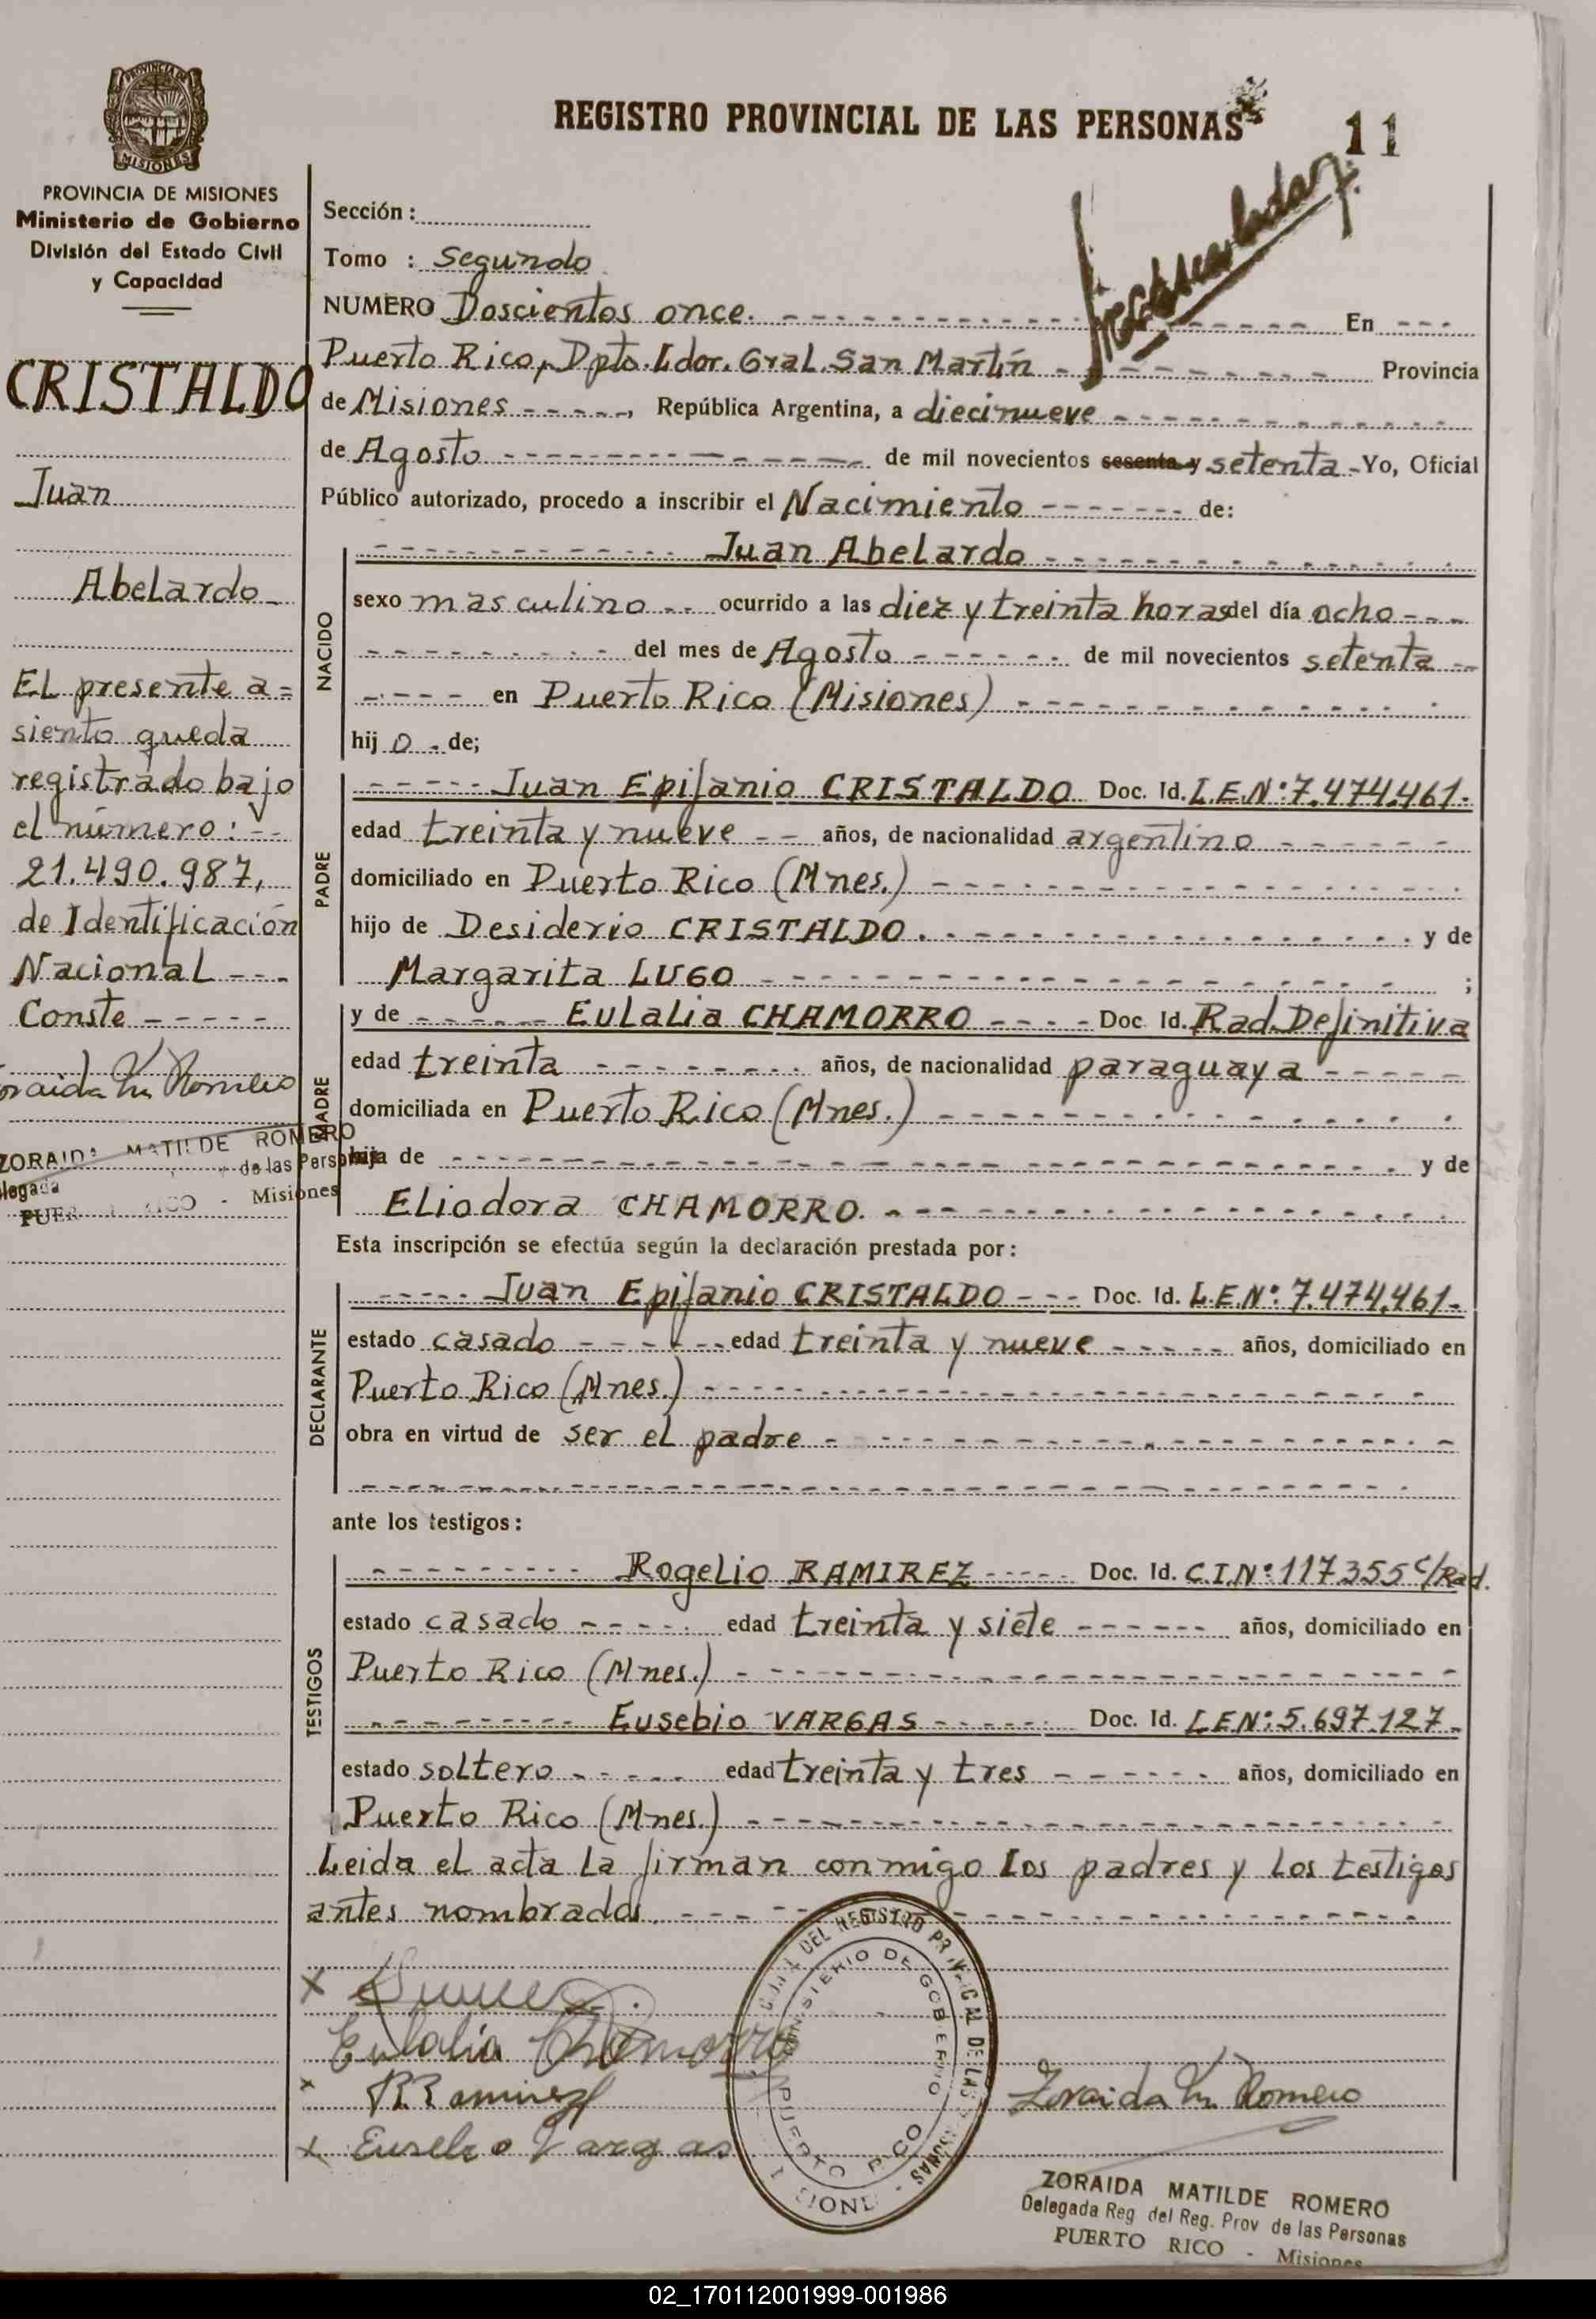 REGISTRO PROVINCIAL DE LAS PERSONAS
11
PROVINCIA DE
MISIONES
PROVINCIA DE MISIONES
Ministerio de Gobierno
División del Estado Civil
y Capacidad
CRISTALDO
Juan
Abelardo
El presente a=
siento queda
registrado bajo
el número: --
21.490.987,
de Identificación
Nacional ---
Conste -----
Zoraida M. Romero
ZORAIDA MATILDE ROMERO
de las Personas
PUERTO RICO - Misiones
Sección:
Tomo : Segundo
NUMERO Doscientos once. En
Puerto Rico, Dpto. Ldor. Gral. San Martín - Provincia
de Misiones -----, República Argentina, a diecinueve
de Agosto de mil novecientos sesenta y setenta - Yo, Oficial
Público autorizado, procedo a inscribir el Nacimiento ------- de:
NACIDO
Juan Abelardo
sexo masculino -- ocurrido a las diez y treinta horas del día ocho ---
del mes de Agosto ------ de mil novecientos setenta --
en Puerto Rico (Misiones)
hij o - de;
PADRE
Juan Epifanio CRISTALDO Doc. Id. L.E.Nº: 7.474.461.
edad treinta y nueve -- años, de nacionalidad argentino
domiciliado en Puerto Rico (Mnes.)
hijo de Desiderio CRISTALDO. y de
Margarita LUGO ;
MADRE
y de Eulalia CHAMORRO ---- Doc. Id. Rad. Definitiva
edad treinta años, de nacionalidad paraguaya
domiciliada en Puerto Rico (Mnes.)
hija de y de
Eliodora CHAMORRO.
Esta inscripción se efectúa según la declaración prestada por:
DECLARANTE
Juan Epifanio CRISTALDO --- Doc. Id. L.E.Nº: 7.474.461-
estado casado edad treinta y nueve ----- años, domiciliado en
Puerto Rico (Mnes.)
obra en virtud de ser el padre
ante los testigos:
TESTIGOS
Rogelio RAMIREZ ----- Doc. Id. C.I.Nº: 117355 c/Rad.
estado casado edad treinta y siete ------ años, domiciliado en
Puerto Rico (Mnes.)
Eusebio VARGAS Doc. Id. L.E.N: 5.697.127-
estado soltero edad treinta y tres años, domiciliado en
Puerto Rico (Mnes.)
Leida el acta la firman conmigo los padres y los testigos
antes nombrados.
Eulalia Chamorro
R Ramirez
Eusebio Vargas
Zoraida M. Romero
DEL REGISTRO PROVINCIAL DE LAS PERSONAS
MINISTERIO DE GOBIERNO
PUERTO RICO
ZORAIDA MATILDE ROMERO
Delegada Reg del Reg. Prov de las Personas
PUERTO RICO - Misiones
02_170112001999-001986